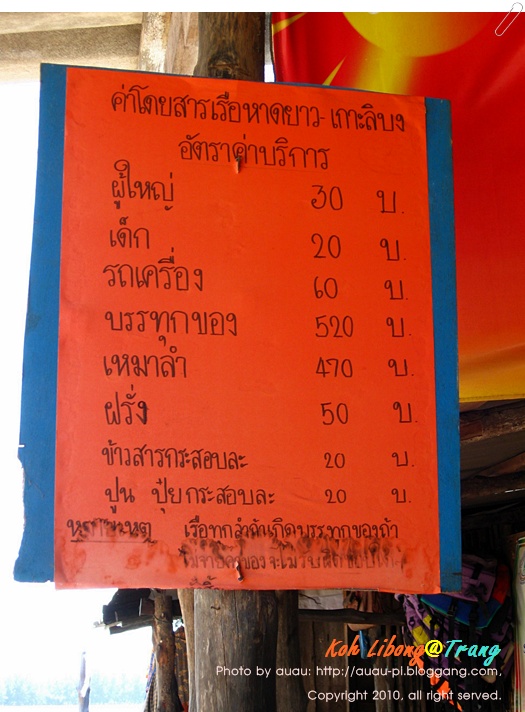 ค่าโดยสารเรือหาดยาว-เกาะลิบง
อัตราค่าบริการ
ผู้ใหญ่ 30 บ.
เด็ก 20 บ.
รถเครื่อง 60 บ.
บรรทุกของ 520 บ.
เหมาลำ 470 บ.
ฝรั่ง 50 บ.
ข้าวสารกระสอบละ 20 บ.
ปูน ปุ๋ยกระสอบละ 20 บ.
หมายเหตุ เรือทุกลำถ้าเกิดบรรทุกของถ้า
Koh Libong@Trang
Photo by auau: http://auau-pi.bloggang.com,
Copyright 2010, all right served.